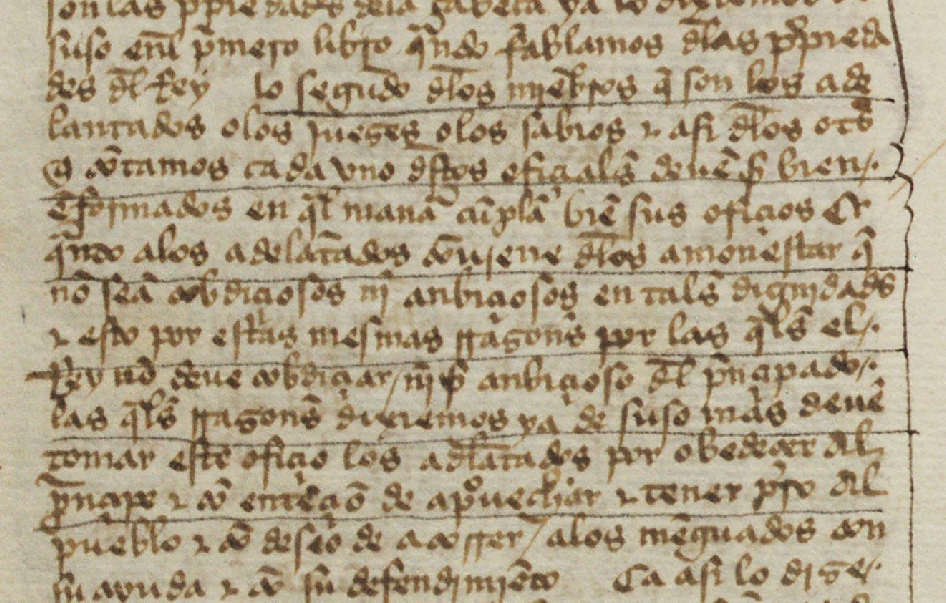 son las ꝓpiedads dela cabeça ya lo diximos de
suso enl pˀmero libro qˉndo fablamos dlas pˀpieda
des dl Rey lo segūdo dlos miēbros q̄ son los ade
lantados o los jueçes o los sabios ⁊ asi dlos otˢ
cōtamos cada vno dstos ofiçials deuē sˀ bien
ēformados en ql̄ manˀa cūplā biē sus ofiçios Et
qˉndo a los adelātados cōujene dlos amonestar q̄
nō seā cobdiçiosos nj̄ anbiçiosos en tals dignidads
⁊ esto por estˀas mesmas rrazons por las qls el
Rey nō deue cobdiçiar nj̄ sˀ anbiçioso dl pˀnçipado
las qls rrazons dixiemos ya de suso mas deuē
tomar este ofiçio los adlātados por obedeçer al
pˀnçipe ⁊ cō entēçiō de apºuechar ⁊ tener pˀo al
pueblo ⁊ cō deseo de acorrer a los mēguados con
su ayuda ⁊ cō su defendimiēto Ca asi lo dize